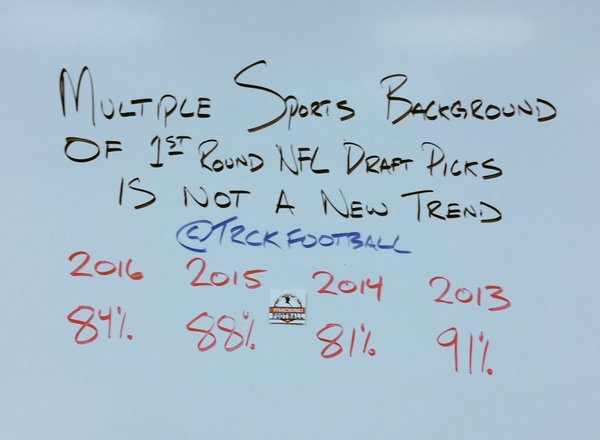 MULTIPLE SPORTS BACKGROUND
OF 1ST ROUND NFL DRAFT PICKS
IS NOT A NEW TREND
@TRCKFOOTBALL
2016 2015 2014 2013
TRACKING
FOOTBALL
84% 88% 81% 91%